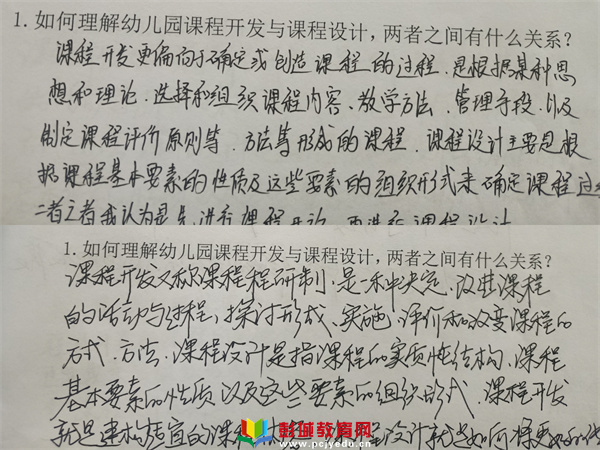 1. 如何理解幼儿园课程开发与课程设计，两者之间有什么关系？
课程开发更偏向于确定或创造课程的过程，是根据某种思
想和理论、选择和组织课程内容、教学方法、管理手段、以及
制定课程评价原则等、方法等形成的课程，课程设计主要是根
据课程基本要素的性质及这些要素的组织形式来确定课程
二者之者我认为是先进行课程开
1. 如何理解幼儿园课程开发与课程设计，两者之间有什么关系？
课程开发又称课程程研制，是一种决定、改进课程
的活动与过程，探讨形成、实施、评价和改变课程的
方式、方法、课程设计是指课程的实质性结构、课程
基本要素的性质以及这些要素的组织形式、课程开发
就是建构适宜的课程 设计就是如何将更
彭城教育网
www.pcjyedu.cn